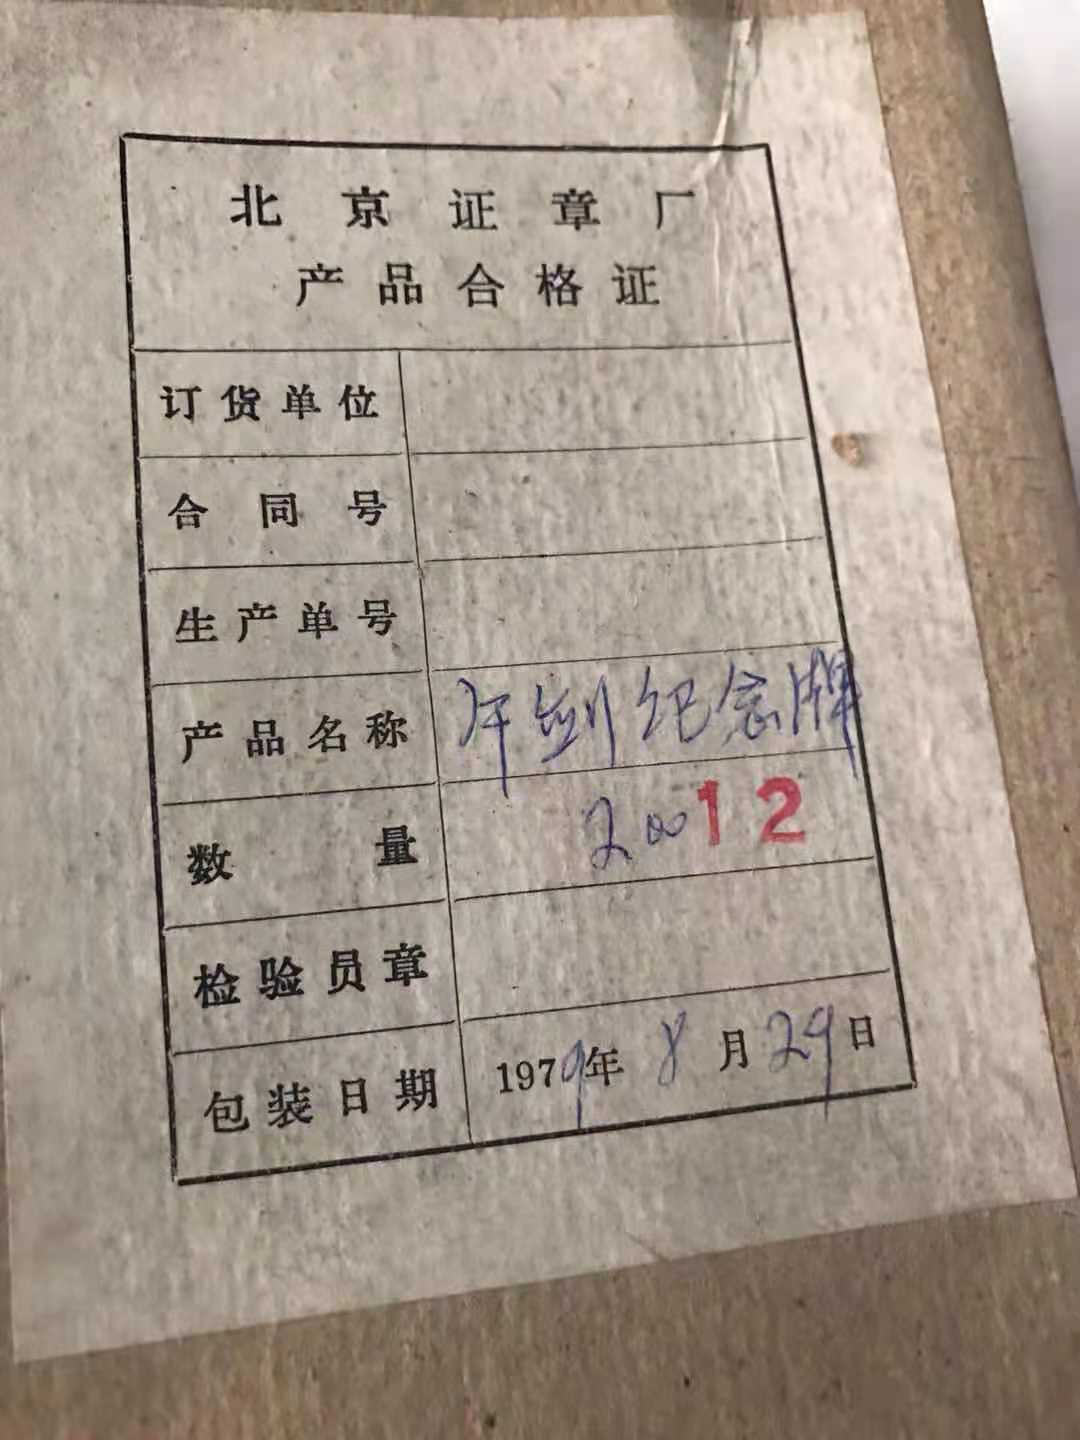 北京证章厂
产品合格证
订货单位
合同号
生产单号
产品名称 纪念牌
数量 200 12
检验员章
包装日期 1979年8月29日